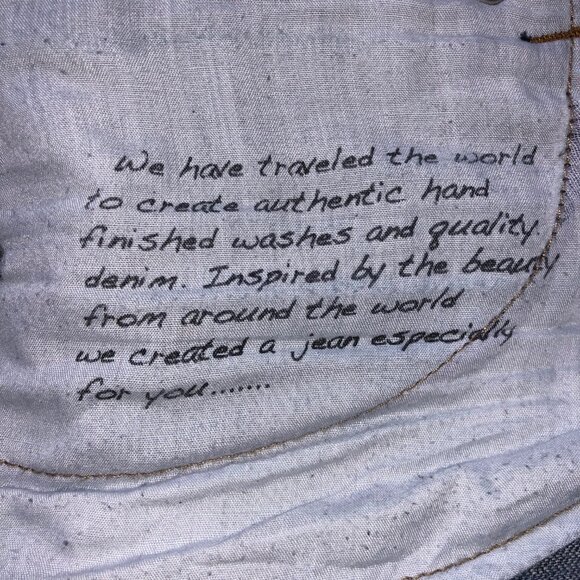 We have traveled the world
to create authentic hand
finished washes and quality.
denim. Inspired by the beauty
from around the world
we created a jean especially
for you.......